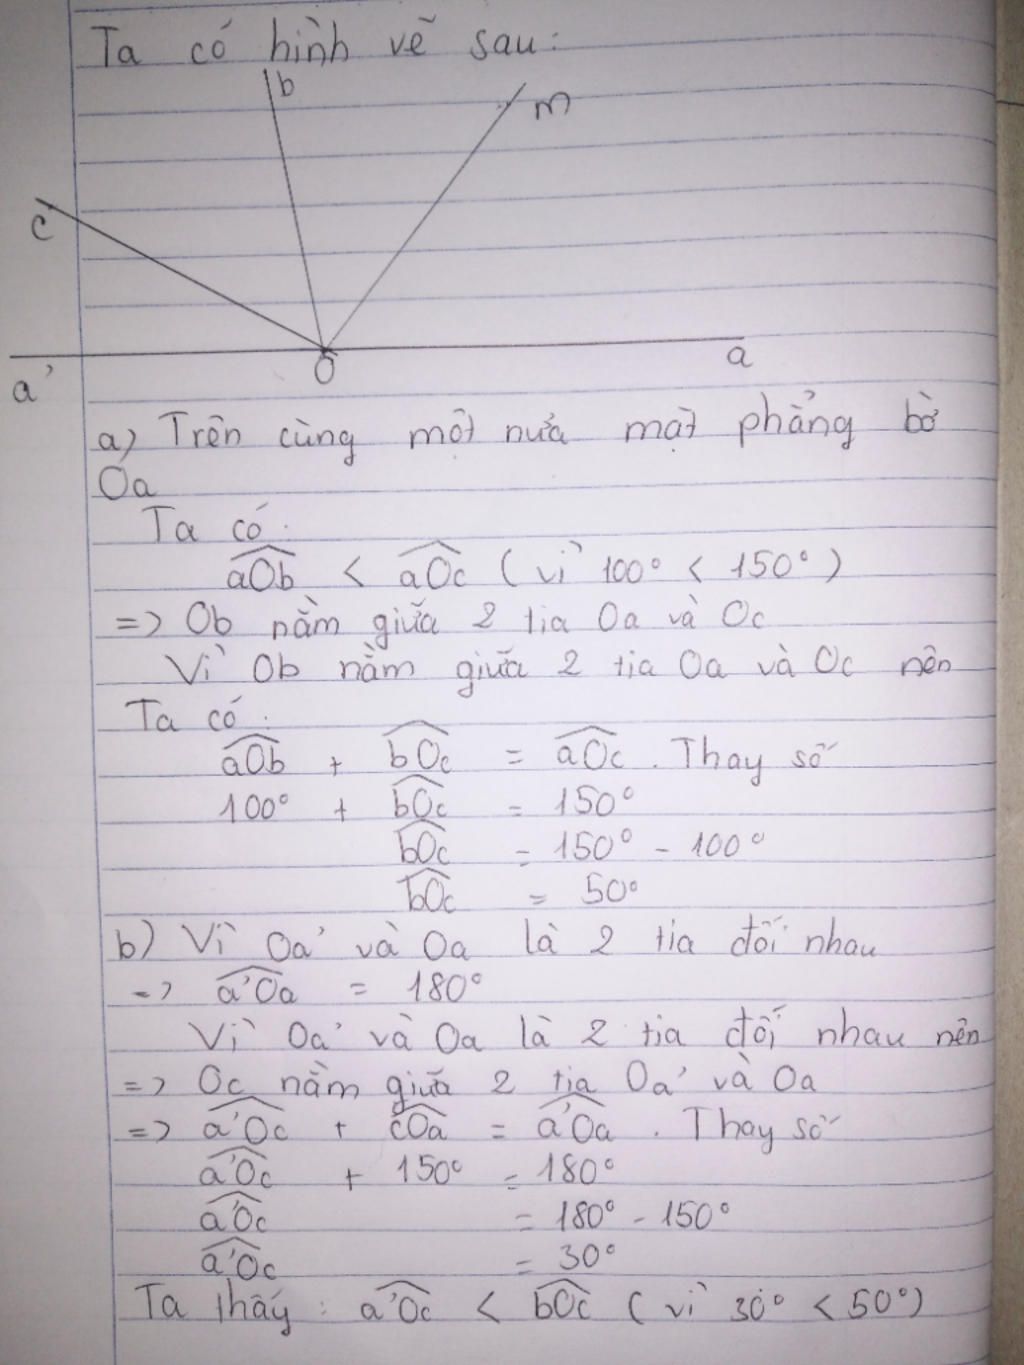 Ta có hình vẽ sau:
b
m
c
a'
O
a
a) Trên cùng một nửa mặt phẳng bờ
Oa
Ta có:
aOb < aOc ( vì 100° < 150° )
=> Ob nằm giữa 2 tia Oa và Oc
Vì Ob nằm giữa 2 tia Oa và Oc nên
Ta có:
aOb + bOc = aOc . Thay số
100° + bOc = 150°
bOc = 150° - 100°
bOc = 50°
b) Vì Oa' và Oa là 2 tia đối nhau
=> a'Oa = 180°
Vì Oa' và Oa là 2 tia đối nhau nên
=> Oc nằm giữa 2 tia Oa' và Oa
=> a'Oc + cOa = a'Oa . Thay số
a'Oc + 150° = 180°
a'Oc = 180° - 150°
a'Oc = 30°
Ta thấy : a'Oc < bOc ( vì 30° < 50° )